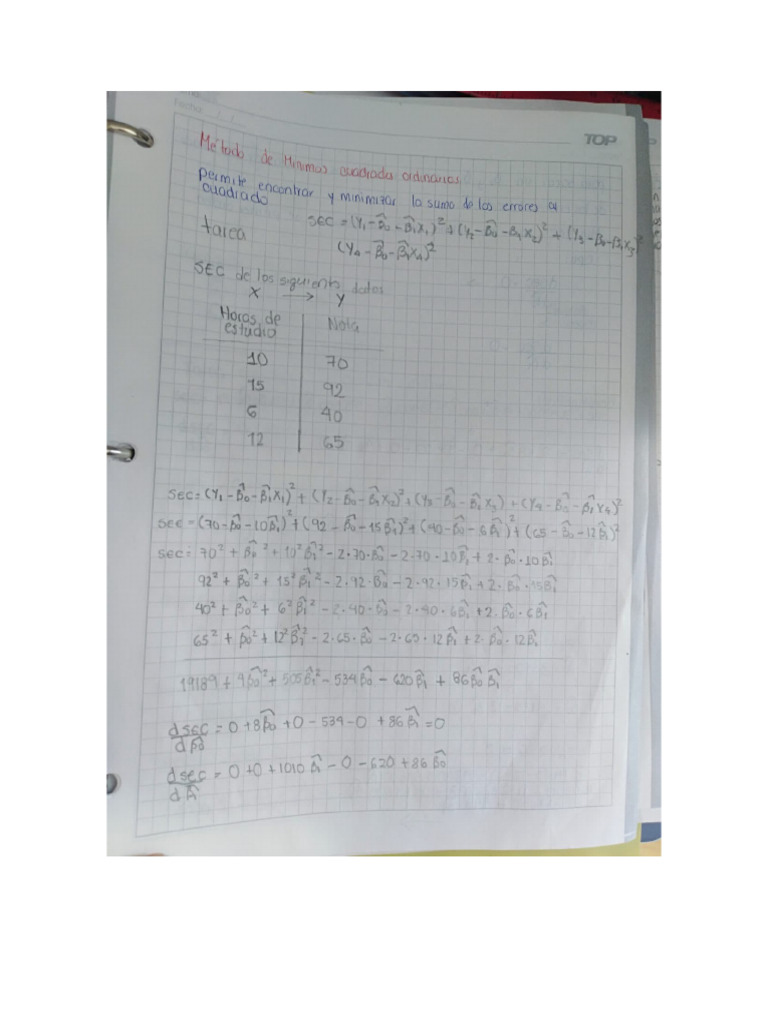 Fecha:
TOP
Método de Minimos cuadrada ordinarios
permite encontrar y minimizar la suma de los errores al
cuadrado
tarea
SEC = (Y₁ - β̂₀ - β̂₁X₁)² + (Y₂ - β̂₀ - β̂₁X₂)² + (Y₃ - β₀ - β₁X₃)²
(Y₄ - β̂₀ - β̂₁X₄)²
SEC de los siguients datos
X → Y
Horas de estudio | Nota
10 | 70
15 | 92
6 | 40
12 | 65
SEC = (Y₁ - β̂₀ - β̂₁X₁)² + (Y₂ - β̂₀ - β̂₁X₂)² + (Y₃ - β̂₀ - β̂₁X₃) + (Y₄ - β̂₀ - β̂₁X₄)²
SEC = (70 - β̂₀ - 10β̂₁)² + (92 - β̂₀ - 15β̂₁)² + (40 - β̂₀ - 6β̂₁)² + (65 - β̂₀ - 12β̂₁)²
SEC: 70² + β̂₀² + 10²β̂₁² - 2·70·β̂₀ - 2·70·10β̂₁ + 2·β̂₀·10β̂₁
92² + β̂₀² + 15²β̂₁² - 2·92·β̂₀ - 2·92·15β̂₁ + 2·β̂₀·15β̂₁
40² + β̂₀² + 6²β̂₁² - 2·40·β̂₀ - 2·40·6β̂₁ + 2·β̂₀·6β̂₁
65² + β̂₀² + 12²β̂₁² - 2·65·β̂₀ - 2·65·12β̂₁ + 2·β̂₀·12β̂₁
19189 + 4β̂₀² + 505β̂₁² - 534β̂₀ - 620β̂₁ + 86β̂₀β̂₁
dsec/dβ̂₀ = 0 + 8β̂₀ + 0 - 534 - 0 + 86β̂₁ = 0
dsec/dβ̂₁ = 0 + 0 + 1010β̂₁ - 0 - 620 + 86β̂₀